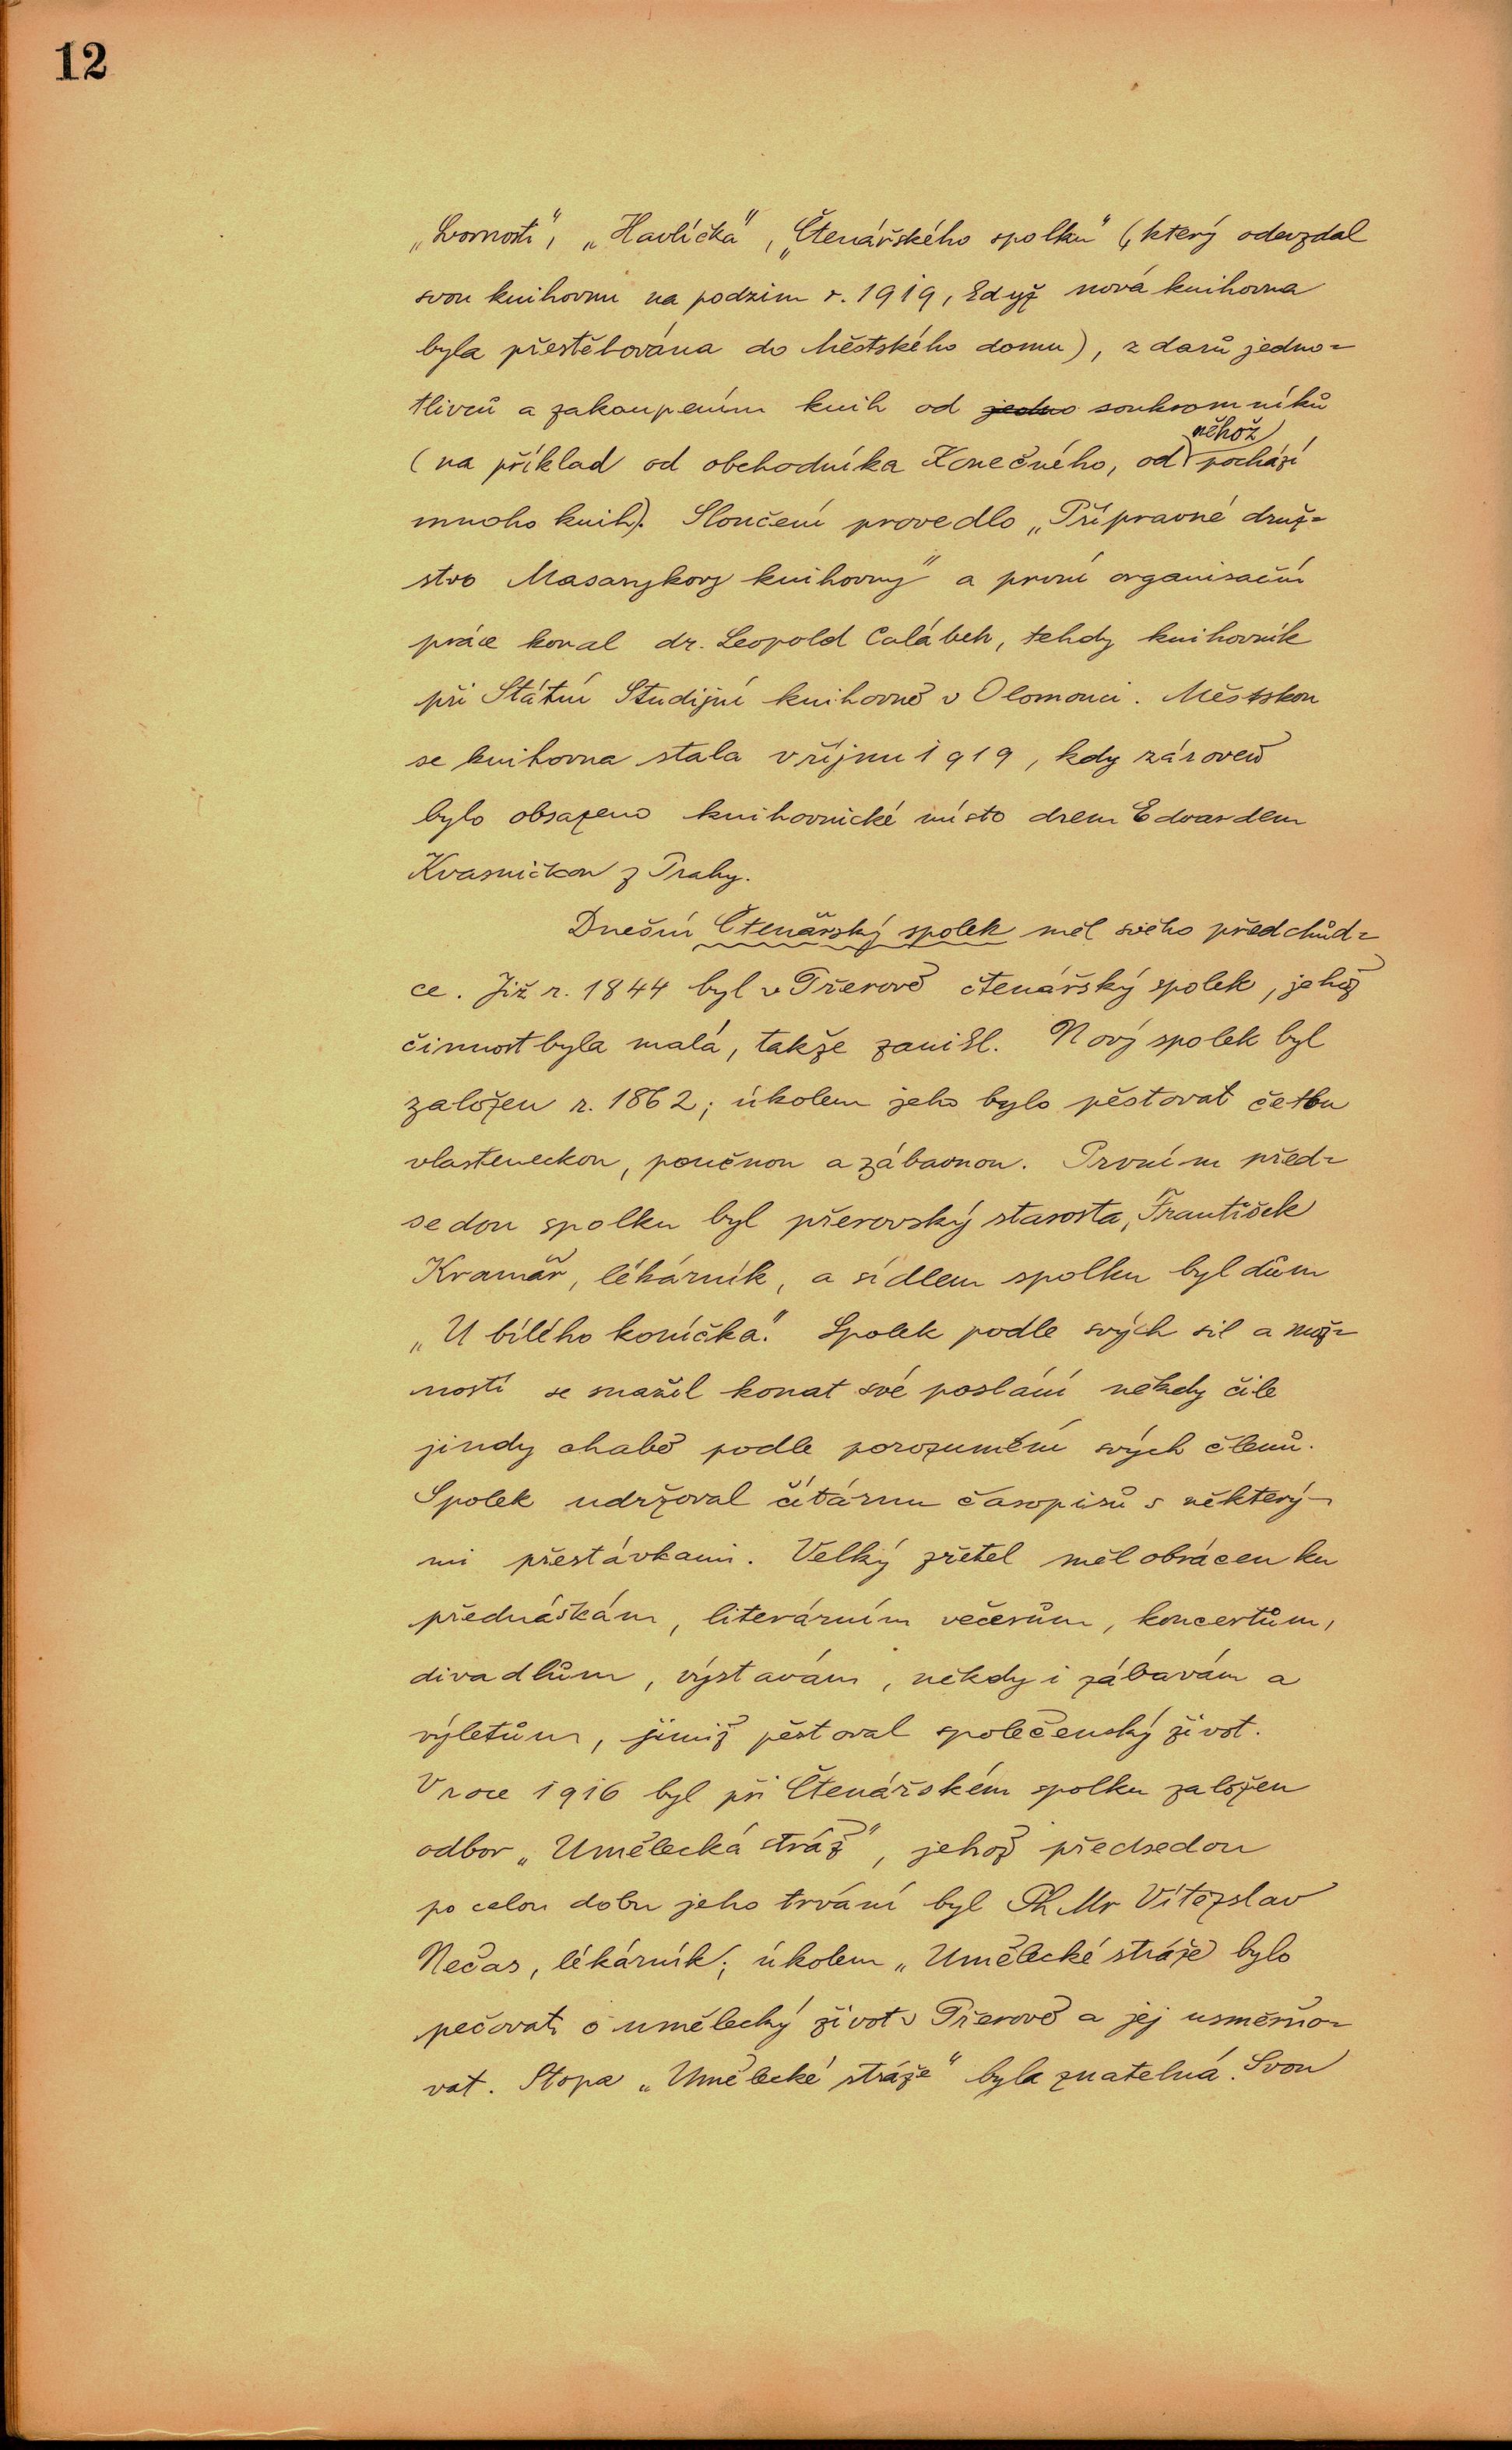 12
„Svornosti“, „Havlíčka“, „Čtenářského spolku“ (, který odevzdal
svou knihovnu na podzim r. 1919, když nová knihovna
byla přestěhována do Městského domu), z darů jedno=
tlivců a zakoupením knih od jedno soukromníků
něhož
(na příklad od obchodníka Konečného, od pochází
mnoho knih). Sloučení provedlo „Přípravné druž=
stvo Masarykovy knihovny“ a první organisační
práce konal dr. Leopold Calábek, tehdy knihovník
při Státní Studijní knihovně v Olomouci. Městskou
se knihovna stala v říjnu 1919, kdy zároveň
bylo obsazeno knihovnické místo drem Edvardem
Kvasničkou z Prahy.
Dnešní Čtenářský spolek měl svého předchůd=
ce. Již r. 1844 byl v Přerově čtenářský spolek, jehož
činnost byla malá, takže zanikl. Nový spolek byl
založen r. 1862; úkolem jeho bylo pěstovat četbu
vlasteneckou, poučnou a zábavnou. Prvním před=
sedou spolku byl přerovský starosta, František
Kramář, lékárník, a sídlem spolku byl dům
„U bílého koníčka“. Spolek podle svých sil a mož=
ností se snažil konat své poslání někdy čile
jindy chabě podle porozumění svých členů.
Spolek udržoval čítárnu časopisů s některý-
mi přestávkami. Velký zřetel měl obrácen ku
přednáškám, literárním večerům, koncertům,
divadlům, výstavám, někdy i zábavám a
výletům, jimiž pěstoval společenský život.
V roce 1916 byl při Čtenářském spolku založen
odbor „Umělecká stráž“, jehož předsedou
po celou dobu jeho trvání byl Ph Mr Vítězslav
Nečas, lékárník; úkolem „Umělecké stráže bylo
pečovati o umělecký život v Přerově a jej usměrňo=
vat. Stopa „Umělecké stráže“ byla znatelná. Svou